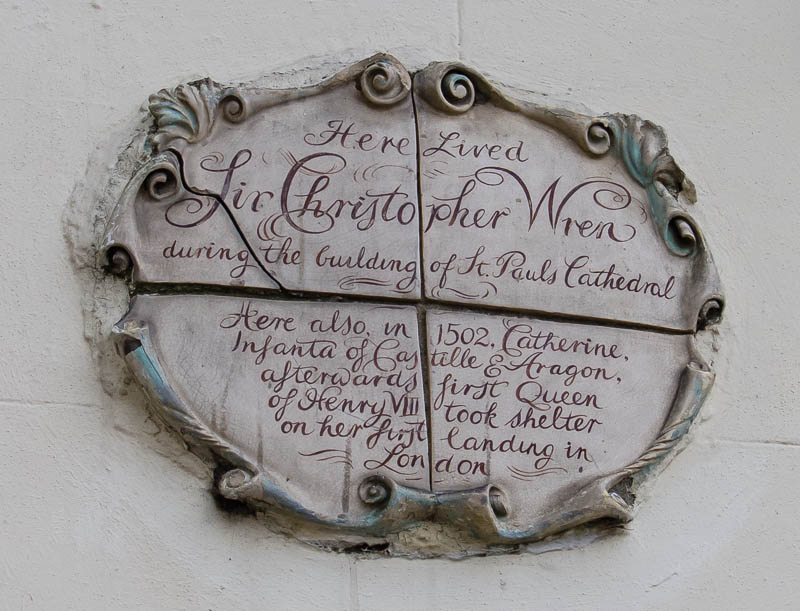 Here Lived
Sir Christopher Wren
during the building of St. Pauls Cathedral
Here also, in 1502, Catherine,
Infanta of Castille & Aragon,
afterwards first Queen
of Henry VIII took shelter
on her first landing in
London